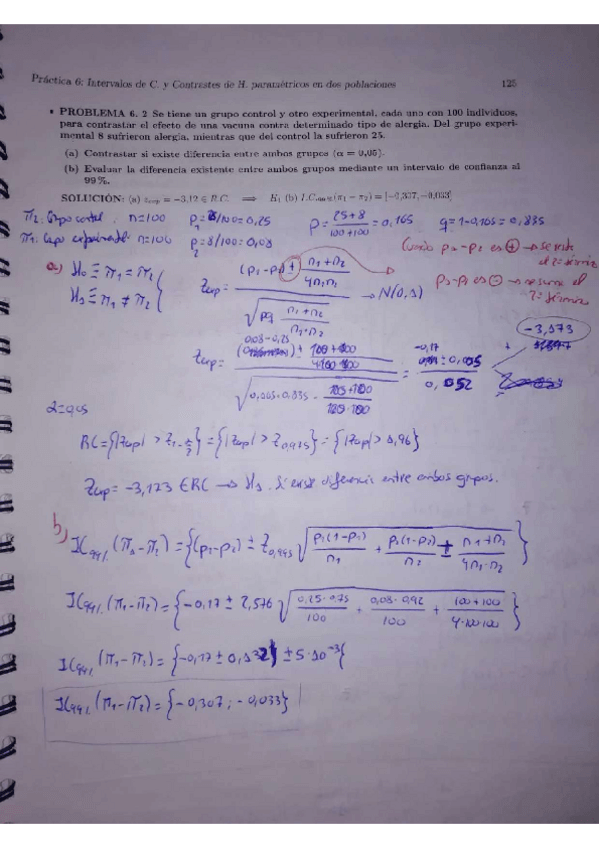 Práctica 6: Intervalos de C. y Contrastes de H. paramétricos en dos poblaciones 125
• PROBLEMA 6. 2 Se tiene un grupo control y otro experimental, cada uno con 100 individuos,
para contrastar el efecto de una vacuna contra determinado tipo de alergia. Del grupo experi-
mental 8 sufrieron alergia, mientras que del control la sufrieron 25.
(a) Contrastar si existe diferencia entre ambos grupos (α = 0,05).
(b) Evaluar la diferencia existente entre ambos grupos mediante un intervalo de confianza al
99 %.
SOLUCIÓN: (a) z_exp = −3,12 ∈ R.C. ⟹ H₁ (b) I.C._99%(π₁ − π₂) = [−0,307, −0,033]
π₂: Grupo control. n=100 p₁ = 25/100 = 0,25 p = (25+8)/(100+100) = 0,165 q = 1-0,165 = 0,835
π₁: Grupo experimental: n=100 p₂ = 8/100 = 0,08
Cuando p₁-p₂ es ⊕ → se resta
p₁-p₂ es ⊖ → se suma el
a) H₀ ≡ π₁ = π₂
H₁ ≡ π₁ ≠ π₂
Z_exp = ((p₁-p₂) ± (n₁+n₂)/(4n₁n₂)) / √(pq (n₁+n₂)/(n₁·n₂)) → N(0,1)
Z_exp = ((0,08-0,25) ± (100+100)/(4·100·100)) / √(0,165·0,835 · (100+100)/(100·100)) = (-0,17 ± 0,005)/0,052 -3,173
α=0,05
RC = {|Zexp| > Z_{1-α/2}} = {|Zexp| > Z_{0,975}} = {|Zexp| > 1,96}
Zexp = -3,173 ∈ RC → H₁. Si existe diferencia entre ambos grupos.
b) IC_99% (π₁-π₂) = {(p₁-p₂) ± Z_0,995 √(p₁(1-p₁)/n₁ + p₂(1-p₂)/n₂) ± (n₁+n₂)/(4n₁·n₂)}
IC_99% (π₁-π₂) = {-0,17 ± 2,576 √(0,25·0,75/100 + 0,08·0,92/100 + (100+100)/(4·100·100))}
IC_99% (π₁-π₂) = {-0,17 ± 0,132 ± 5·10⁻³}
IC_99% (π₁-π₂) = {-0,307; -0,033}